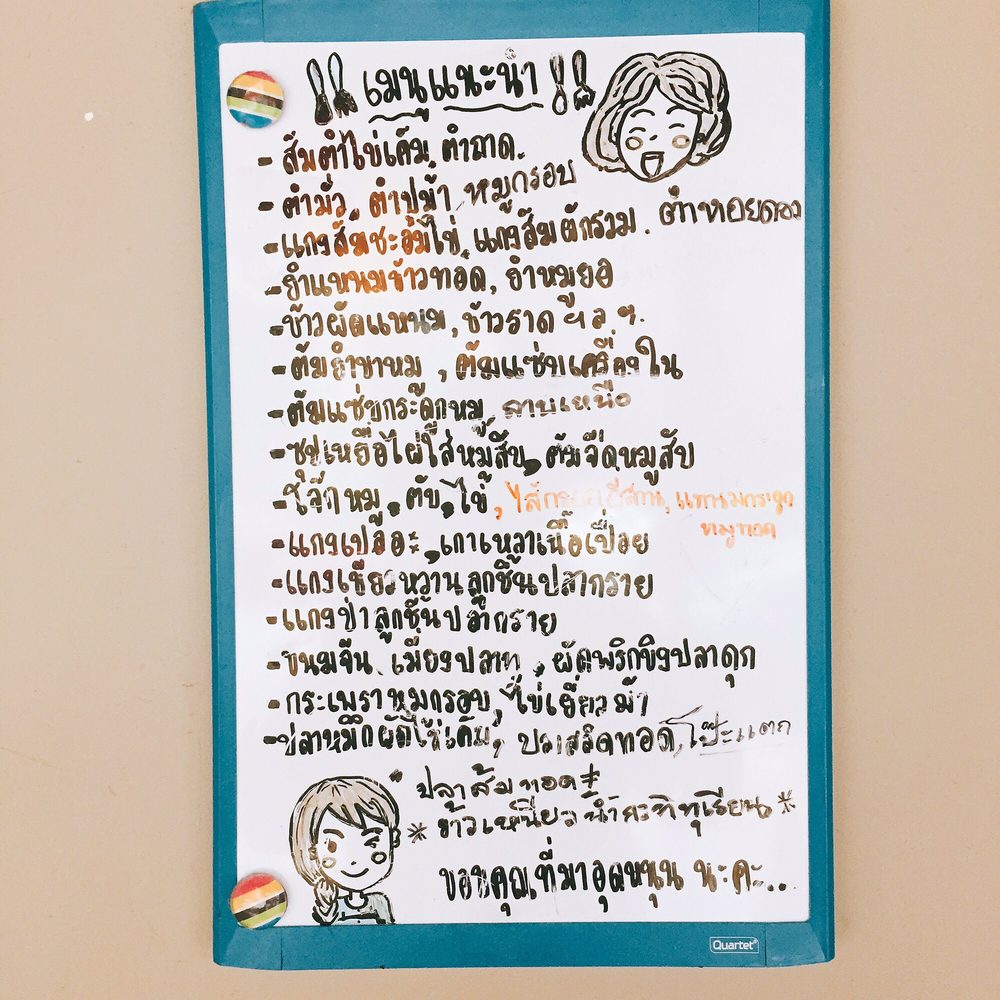 เมนูแนะนำ
- ส้มตำไข่เค็ม, ตำถาด
- ตำมั่ว, ตำปูม้า, หมูกรอบ
- แกงส้มชะอมไข่, แกงส้มผักรวม. ตำหอยดอง
- ยำแหนมข้าวทอด, ยำหมูยอ
- ข้าวผัดแหนม, ข้าวราด ฯลฯ.
- ต้มยำขาหมู, ต้มแซ่บเครื่องใน
- ต้มแซ่บกระดูกหมู, ลาบเหนือ
- ซุปเหยื่อไผ่ใส่หมูสับ, ต้มจืดหมูสับ
- โจ๊กหมู, ตับ, ไข่, ไส้กรอกอีสาน, แหนมกระดูก
หมูทอด
- แกงเปลอะ, เกาเหลาเนื้อเปื่อย
- แกงเขียวหวานลูกชิ้นปลากราย
- แกงป่าลูกชิ้นปลากราย
- ขนมจีน, เมี่ยงปลาทู, ผัดพริกขิงปลาดุก
- กระเพราหมูกรอบ, ไข่เยี่ยวม้า
- ปลาหมึกผัดไข่เค็ม, ปลาสลิดทอด, โป๊ะแตก
ปลาส้มทอด
* ข้าวเหนียวน้ำกะทิทุเรียน *
ขอบคุณที่มาอุดหนุน นะคะ...
Quartet